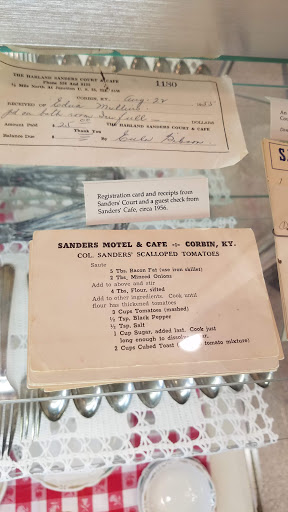 THE HARLAND SANDERS COURT & CAFE
Phone 188 And 9101
½ Mile North At Junction U. S. 25, 25E
1180
CORBIN, KY. Aug-22 1955
RECEIVED OF Edna Mullins
pd on bath room in full DOLLARS
Amount Paid $ 25.00 THE HARLAND SANDERS COURT & CAFE
Thank You
Balance Due By
Registration card and receipts from
Sanders' Court and a guest check from
Sanders' Cafe, circa 1956.
SANDERS MOTEL & CAFE CORBIN, KY.
COL. SANDERS' SCALLOPED TOMATOES
Saute
5 Tbs. Bacon Fat (use iron skillet)
2 Tbs. Minced Onions
Add to above and stir
4 Tbs. Flour, sifted
Add to other ingredients. Cook until
flour has thickened tomatoes
3 Cups Tomatoes (mashed)
½ Tsp. Black Pepper
½ Tsp. Salt
1 Cup Sugar, added last. Cook just
long enough to dissolve
2 Cups Cubed Toast tomato mixture)
SAN